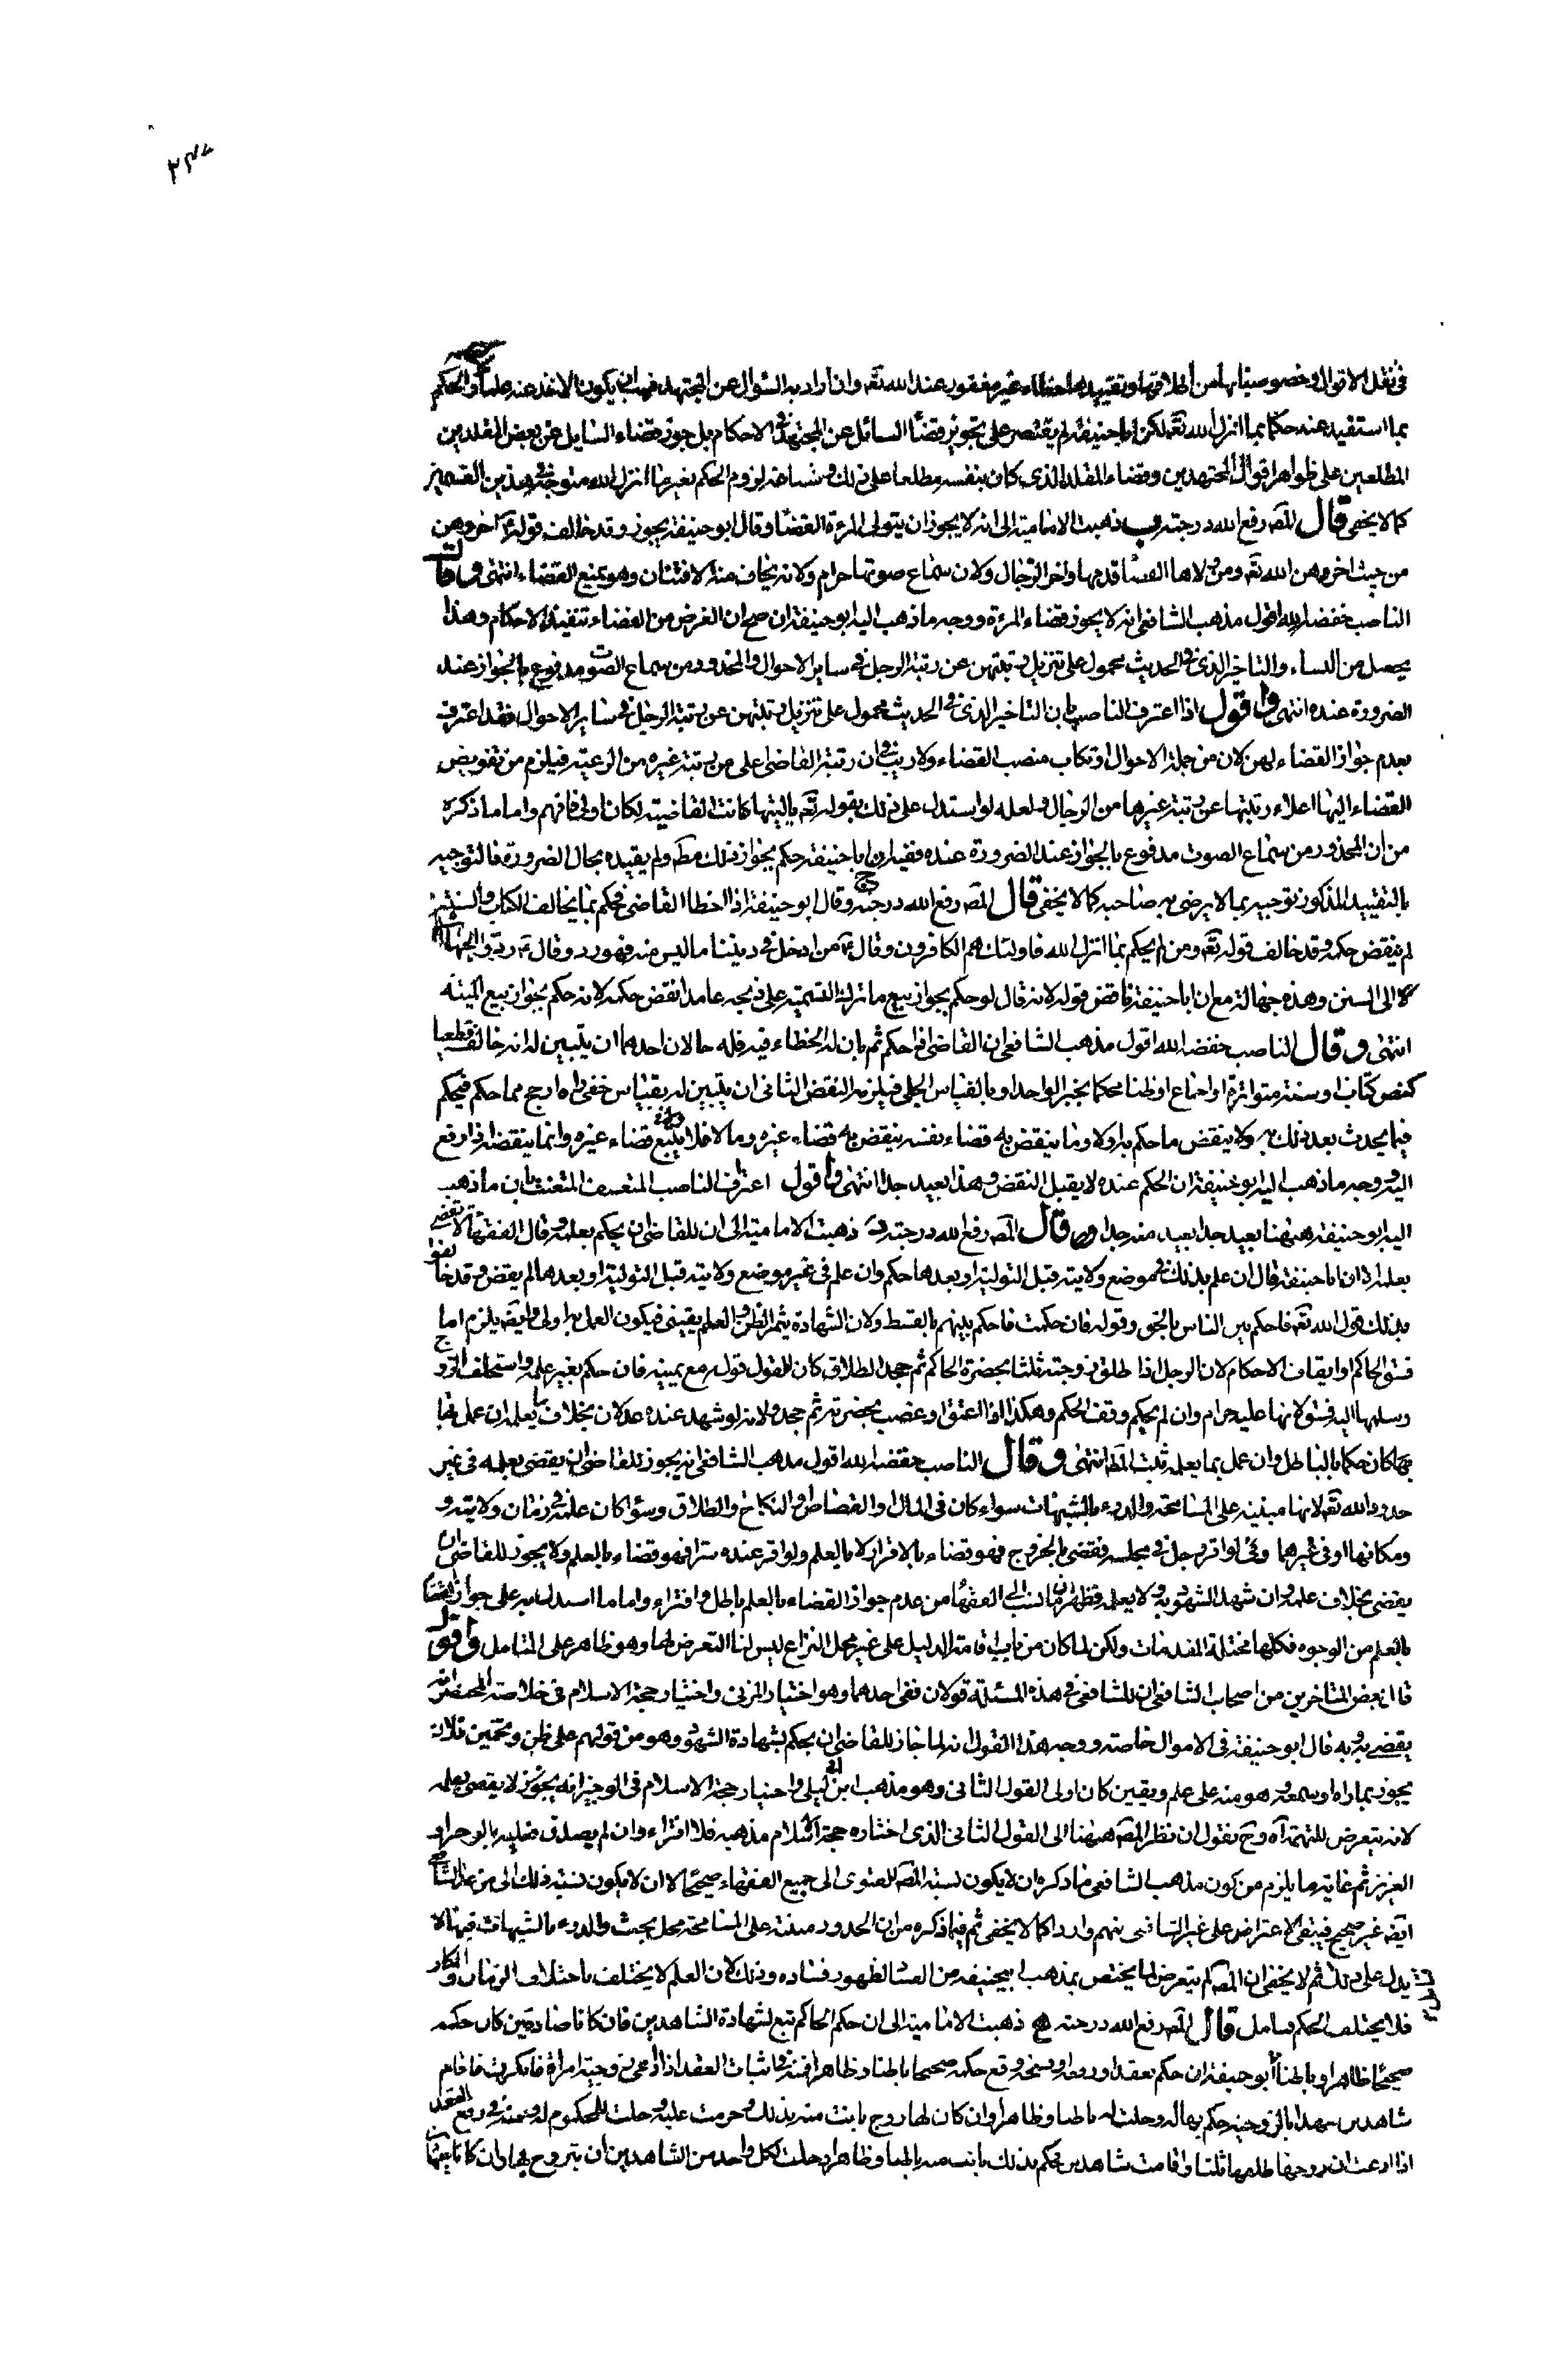 في نقل الاقوال وخصوصياتها من اطلاقها وتقييدها خطاء غير مغفور عند الله تعه وان اراد به السؤال عن المجتهد فهب ان يكون الاخذ عنه علما والحكم
بما استفيد عنه حكما بما انزل الله تعه لكن اباحنيفة لم يقتصر على تجويز قضا السائل عن المجتهد في الاحكام بل جوز قضاء السايل عن بعض المقلدين
المطلعين على ظواهر اقوال المجتهدين وقضاء المقلد الذي كان بنفسه مطلعا على ذلك وشناعة لزوم الحكم بغير ما انزل الله متوجه في هذين القسمين
كما لا يخفى قال المص رفع الله درجته ب ذهبت الامامية الى انه لا يجوز ان يتولى المرءة القضا وقال ابو حنيفة يجوز وقد خالف قوله ع اخروهن
من حيث اخرهن الله تعه ومن ولاها القضا قدمها واخر الرجال ولان سماع صوتها حرام ولانه يخاف منها الافتتان وهو يمنع القضاء انتهى وقال
الناصب خفضه الله اقول مذهب الشافعي انه لا يجوز قضاء المرءة ووجه ما ذهب اليه ابو حنيفة ان صح ان الغرض من القضاء تنفيذ الاحكام وهذا
يحصل من النساء والتاخير الذي في الحديث محمول على تنزيل رتبتهن عن رتبة الرجل في ساير الاحوال والمحذور من سماع الصوت مدفوع بالجواز عند
الضرورة عنده انتهى واقول اذا اعترف الناصب بان التاخير الذي في الحديث محمول على تنزيل رتبتهن عن رتبة الرجل في ساير الاحوال فقد اعترف
بعدم جواز القضاء لهن لان من جملة الاحوال ارتكاب منصب القضاء ولا ريب في ان رتبة القاضي اعلى من رتبة غيره من الرعية فيلزم من تفويض
القضاء اليها اعلاء رتبتها عن رتبة غيرها من الرجال ولعله لو استدل على ذلك بقوله تعه ياليتها كانت القاضية لكان اولى فافهم واما ما ذكره
من ان المحذور من سماع الصوت مدفوع بالجواز عند الضرورة عنده ففيه ان اباحنيفة حكم بجواز ذلك مطه ولم يقيده بحال الضرورة فالتوجيه
بالتقييد المذكور توجيه بما لا يرضى به صاحبه كما لا يخفى قال المص رفع الله درجته ج وقال ابو حنيفة اذا اخطا القاضي فحكم بما يخالف الكتاب والسنة
لم ينقض حكمه وقد خالف قوله تعه ومن لم يحكم بما انزل الله فاولئك هم الكافرون وقال ع من ادخل في ديننا ما ليس منه فهو رد وقال ع ردوا الجهالات
الى السنن وهذه جهالة مع ان اباحنيفة ناقض قوله لانه قال لو حكم بجواز بيع ما ترك التسمية على ذبحه عامدا نقض حكمه لانه حكم بجواز بيع الميتة
انتهى وقال الناصب خفضه الله اقول مذهب الشافعي ان القاضي اذا حكم ثم بان له الخطاء فيه فله حالان احدهما ان يتبين له انه خالف قطعيا
كنص كتاب او سنة متواترة او اجماع او ظنا محكما بخبر الواحد او بالقياس الجلي فيلزمه النقض الثاني ان يتبين له بقياس خفي راه ارجح مما حكم فيحكم
فيما يحدث بعد ذلك به ولا ينقض ما حكم به اولا وما ينقض به قضاء نفسه ينقض به قضاء غيره وما لا فلا ولا يتبع قضاء غيره وانما ينقضه اذا رفع
اليه ووجه ما ذهب اليه ابو حنيفة ان الحكم عنده لا يقبل النقض وهذا بعيد جدا انتهى واقول اعترف الناصب المتعسف المتعنت بان ما ذهب
اليه ابو حنيفة ههنا بعيد جدا بعيد منه جدا قال المص رفع الله درجته د ذهبت الامامية الى ان للقاضي ان يحكم بعلمه وقال الفقهاء لا يقضي
بعلمه الا ان اباحنيفة قال ان علم بذلك في موضع ولايته قبل التولية او بعدها حكم وان علم في غير موضع ولايته قبل التولية او بعدها لم يقض وقد خالفوا
بذلك قول الله تعه فاحكم بين الناس بالحق وقوله فان حكمت فاحكم بينهم بالقسط ولان الشهادة يثمر الظن والعلم يقيني فيكون العمل به اولى وايضه يلزم اما
فسق الحاكم او ايقاف الاحكام لان الرجل اذا طلق زوجته ثلثا بحضرة الحاكم ثم جحد الطلاق كان القول قوله مع يمينه فان حكم بغير علمه واستحلف الزوج
وسلمها اليه فسق لانها عليه حرام وان لم يحكم وقف الحكم وهكذا اذا اعتق او غصب بحضرته ثم جحد ولانه لو شهد عنده عدلان بخلاف ما يعلمه ان عمل
بها كان حكما بالباطل وان عمل بما يعلمه ثبت المط انتهى وقال الناصب خفضه الله اقول مذهب الشافعي انه يجوز للقاضي ان يقضي بعلمه في غير
حدود الله تعه لانها مبنية على المسامحة والدرء بالشبهات سواء كان في المال والقصاص والنكاح والطلاق وسواء كان علمه في زمان ولايته
ومكانها او في غيرهما ولو اقر رجل في مجلسه فقضى بالخروج فهو قضاء بالاقرار لا بالعلم ولو اقر عنده سرا فهو قضاء بالعلم ولا يجوز للقاضي ان
يقضي بخلاف علمه وان شهد الشهود به ولا يعلمه فظهر ان ما نسب الى الفقها من عدم جواز القضاء بالعلم باطل وافتراء واما ما استدل به على جواز القضا
بالعلم من الوجوه فكلها مختلة المقدمات ولكن لما كان من باب اقامة الدليل على غير محل النزاع ليس لنا التعرض لها وهو ظاهر على المتامل واقول
قال بعض المتاخرين من اصحاب الشافعي ان للشافعي في هذه المسئلة قولان ففي احدهما وهو اختيار المزني واختيار حجة الاسلام في خلاصة المختصر انه
يقضي به وبه قال ابو حنيفة في الاموال خاصة ووجه هذا القول انه لما جاز للقاضي ان يحكم بشهادة الشهود وهو من قولهم على ظن وتخمين فلان
يجوز بما راه او سمعه وهو منه على علم ويقين كان اولى القول الثاني وهو مذهب ابن ابي ليلى واختيار حجة الاسلام في الوجيز انه لا يقضي بعلمه
لانه يتعرض للتهمة اه وح نقول ان نظر المص ههنا الى القول الثاني الذي اختاره حجة الاسلام مذهبه فلا افتراء وان لم يصدق فعليه بالوجيز او
العزيز ثم غاية ما يلزم من كون مذهب الشافعي ما ذكره ان لا يكون نسبة المص للفتوى الى جميع الفقهاء صحيحا لا ان لا يكون نسبة ذلك الى من عدا الشافعي
ايضه غير صحيح فيبقى الاعتراض على غير الشافعي منهم واردا كما لا يخفى ثم فيما ذكره من ان الحدود مبنية على المسامحة محل بحث والدرء بالشبهات فيها لا
يدل على ذلك ثم لا يخفى ان المص لم يتعرض لما يختص بمذهب ابيحنيفه من لظهور فساده وذلك لان العلم لا يختلف باختلاف الزمان والمكان
فلا يختلف الحكم فتامل قال المص رفع الله درجته ه ذهبت الامامية الى ان حكم الحاكم تبع لشهادة الشاهدين فان كانا صادقين كان حكمه
صحيحا ظاهرا وباطنا ابو حنيفة ان حكم بعقد او رفعه او فسخه وقع حكمه صحيحا باطنا وظاهرا فمن اثبات العقد اذا ادعى زوجية امراة فانكرت فاقام
شاهدين شهدا بالزوجية حكم بها له وحلت له باطنا وظاهرا وان كان لها زوج بانت منه بذلك وحرمت عليه وحلت للمحكوم له ومنه في رفع العقد
اذا ادعت ان زوجها طلقها ثلثا واقامت شاهدين فحكم بذلك بانت منه باطنا وظاهرا وحلت لكل واحد من الشاهدين ان يتزوج بها وان كانا